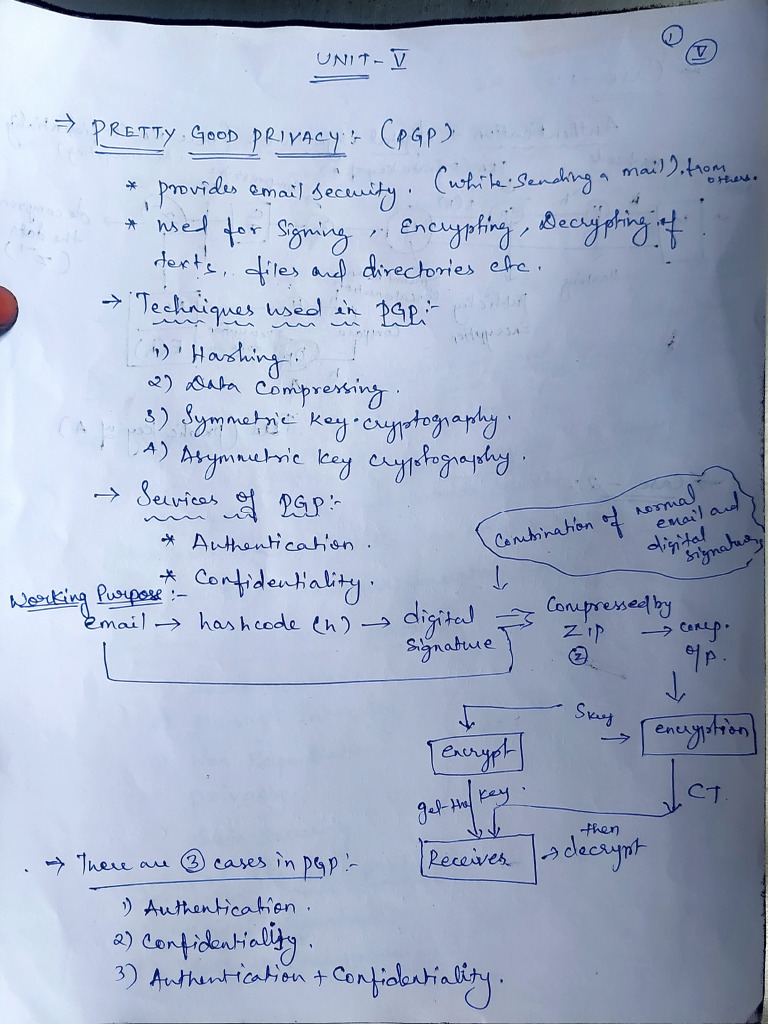 1 V
UNIT - V
→ PRETTY GOOD PRIVACY :- (PGP)
* provides email security. (while sending a mail). from others.
* used for Signing, Encrypting, Decrypting of
texts, files and directories etc.
→ Techniques used in PGP:-
1) Hashing.
2) Data Compressing.
3) Symmetric key cryptography.
4) Asymmetric key cryptography.
→ Services of PGP:-
* Authentication.
* Confidentiality.
Combination of normal
email and
digital
signature
↓
Working Purpose :-
email → hashcode (h) → digital signature ⇒ Compressed by
ZIP
(Z)
→ comp.
o/p.
Skey → encryption
encrypt
get the key.
CT
Receives → then decrypt
→ There are 3 cases in PGP :-
1) Authentication.
2) Confidentiality.
3) Authentication + Confidentiality.